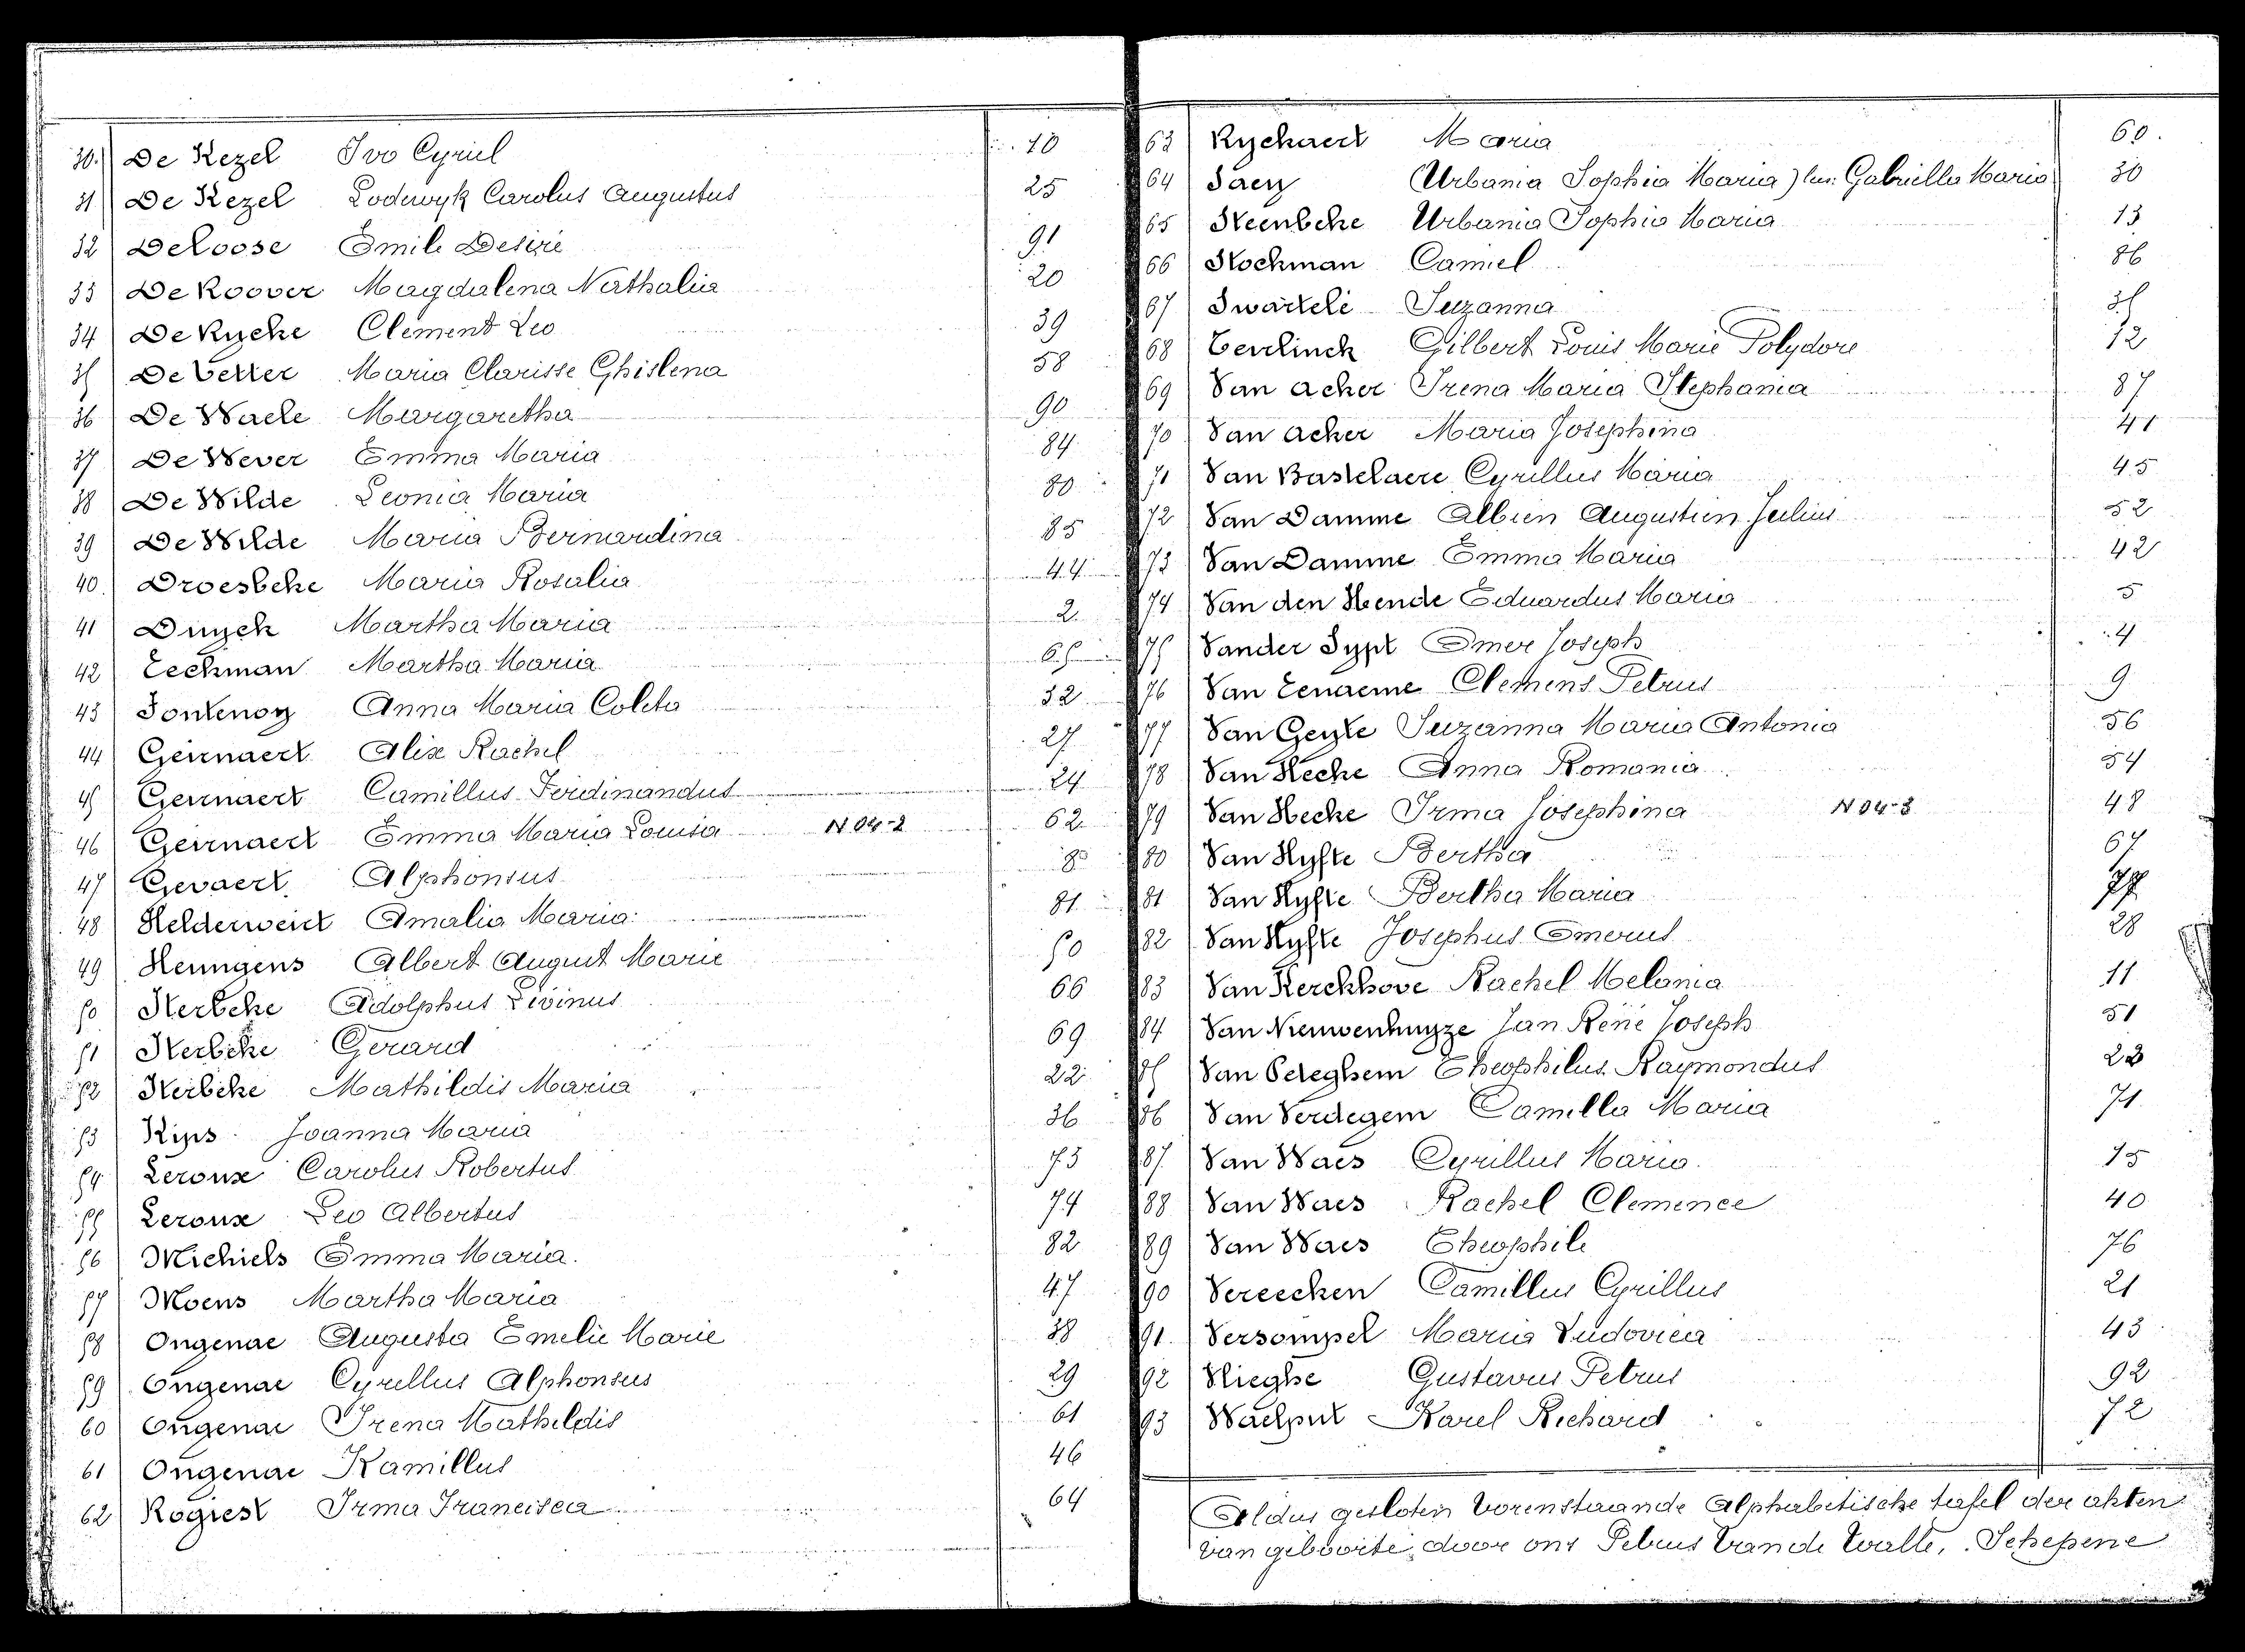 30. De Kezel Ivo Cyriel 10
31 De Kezel Lodewyk Carolus Augustus 25
32 De Loose Emile Desiré 91
33 De Roover Magdalena Nathalia 20
34 De Rycke Clement Leo 39
35 De Vetter Maria Clarisse Ghislena 58
36 De Waele Margaretha 90
37 De Wever Emma Maria 84
38 De Wilde Leonia Maria 80
39 De Wilde Maria Bernardina 85
40. Droesbeke Maria Rosalia 44
41 Duyck Martha Maria 2
42 Eeckman Martha Maria 65
43 Fontenoy Anna Maria Coleta 32
44 Geirnaert Alix Rachel 27
45 Geirnaert Camillus Ferdinandus 24
46 Geirnaert Emma Maria Louisa N 04-2 62
47 Gevaert Alphonsus 8
48 Helderweirt Amalia Maria 81
49 Hemigens Albert August Marie 50
50 Herbeke Adolphus Livinus 66
51 Herbeke Gerard 69
52 Herbeke Mathildis Maria 22
53 Kips Joanna Maria 36
54 Leroux Carolus Robertus 73
55 Leroux Leo Albertus 74
56 Michiels Emma Maria. 82
57 Moens Martha Maria 47
58 Ongenae Augusta Emelie Marie 38
59 Ongenae Cyrellus Alphonsus 29
60 Ongenae Irena Mathildis 61
61 Ongenae Kamillus 46
62 Rogiest Irma Francisca 64
63 Ryckaert Maria 60.
64 Saey Urbania Sophia Maria) Gabriella Maria 30
65 Steenbeke Urbania Sophia Maria 13
66 Stockman Camiel 86
67 Swartelé Suzanna 35
68 Teerlinck Gilbert Louis Marie Polydore 12
69 Van Acker Irena Maria Stephania 87
70 Van Acker Maria Josephina 41
71 Van Bastelaere Cyrillus Maria 45
72 Van Damme Albien Augustien Julius 52
73 Van Damme Emma Maria 42
74 Van den Hende Eduardus Maria 5
75 Vander Sypt Omer Joseph 4
76 Van Eenaeme Clemens Petrus 9
77 Van Geyte Suzanna Maria Antonia 56
78 Van Hecke Anna Romania 54
79 Van Hecke Irma Josephina N 04-3 48
80 Van Hyfte Bertha 67
81 Van Hyfte Bertha Maria 77
82 Van Hyfte Josephus Omerus 28
83 Van Kerckhove Rachel Melania 11
84 Van Nieuwenhuyze Jan René Joseph 51
85 Van Peteghem Theophilus Raymondus 23
86 Van Verdegem Camilla Maria 71
87. Van Waes Cyrillus Maria. 15
88 Van Waes Rachel Clemence 40
89 Van Waes Theophile 76
90 Vereecken Camillus Cyrillus 21
91. Versompel Maria Ludovica 43
92 Vlieghe Gustavus Petrus 92
93 Waelput Karel Richard 72
Aldus gesloten vorenstaande Alphabetische tafel der akten
van geboorte, door ons Petrus Vande Walle, Schepene